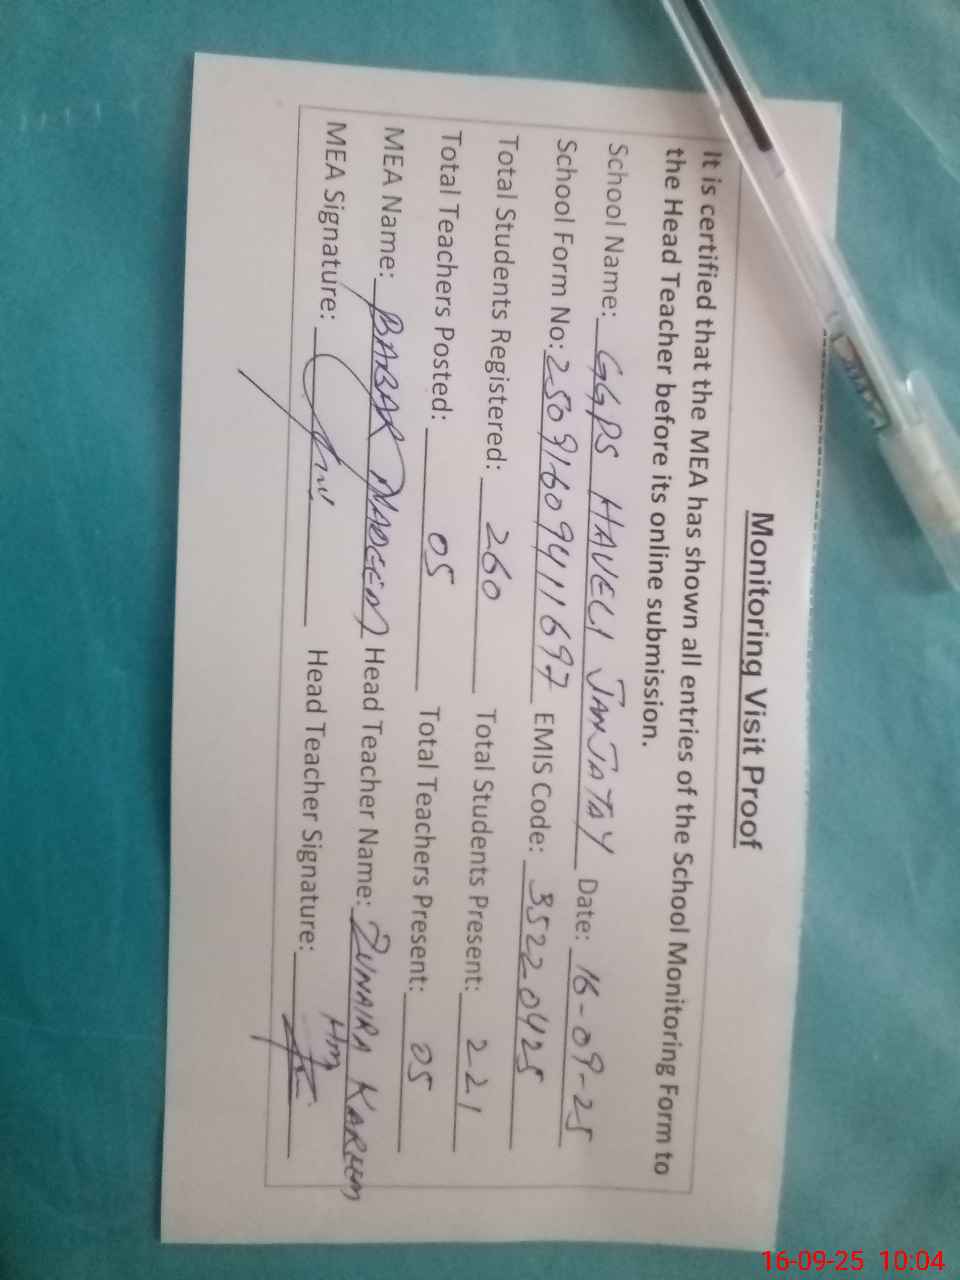 Monitoring Visit Proof
It is certified that the MEA has shown all entries of the School Monitoring Form to
the Head Teacher before its online submission.
School Name: GGPS HAVELI JANJATAY Date: 16-09-25
School Form No: 25091609411697 EMIS Code: 35220425
Total Students Registered: 260 Total Students Present: 221
Total Teachers Posted: 05 Total Teachers Present: 05
MEA Name: BABAR NADEEM Head Teacher Name: ZUNAIRA KAREEM
HM
MEA Signature: Head Teacher Signature:
16-09-25 10:04